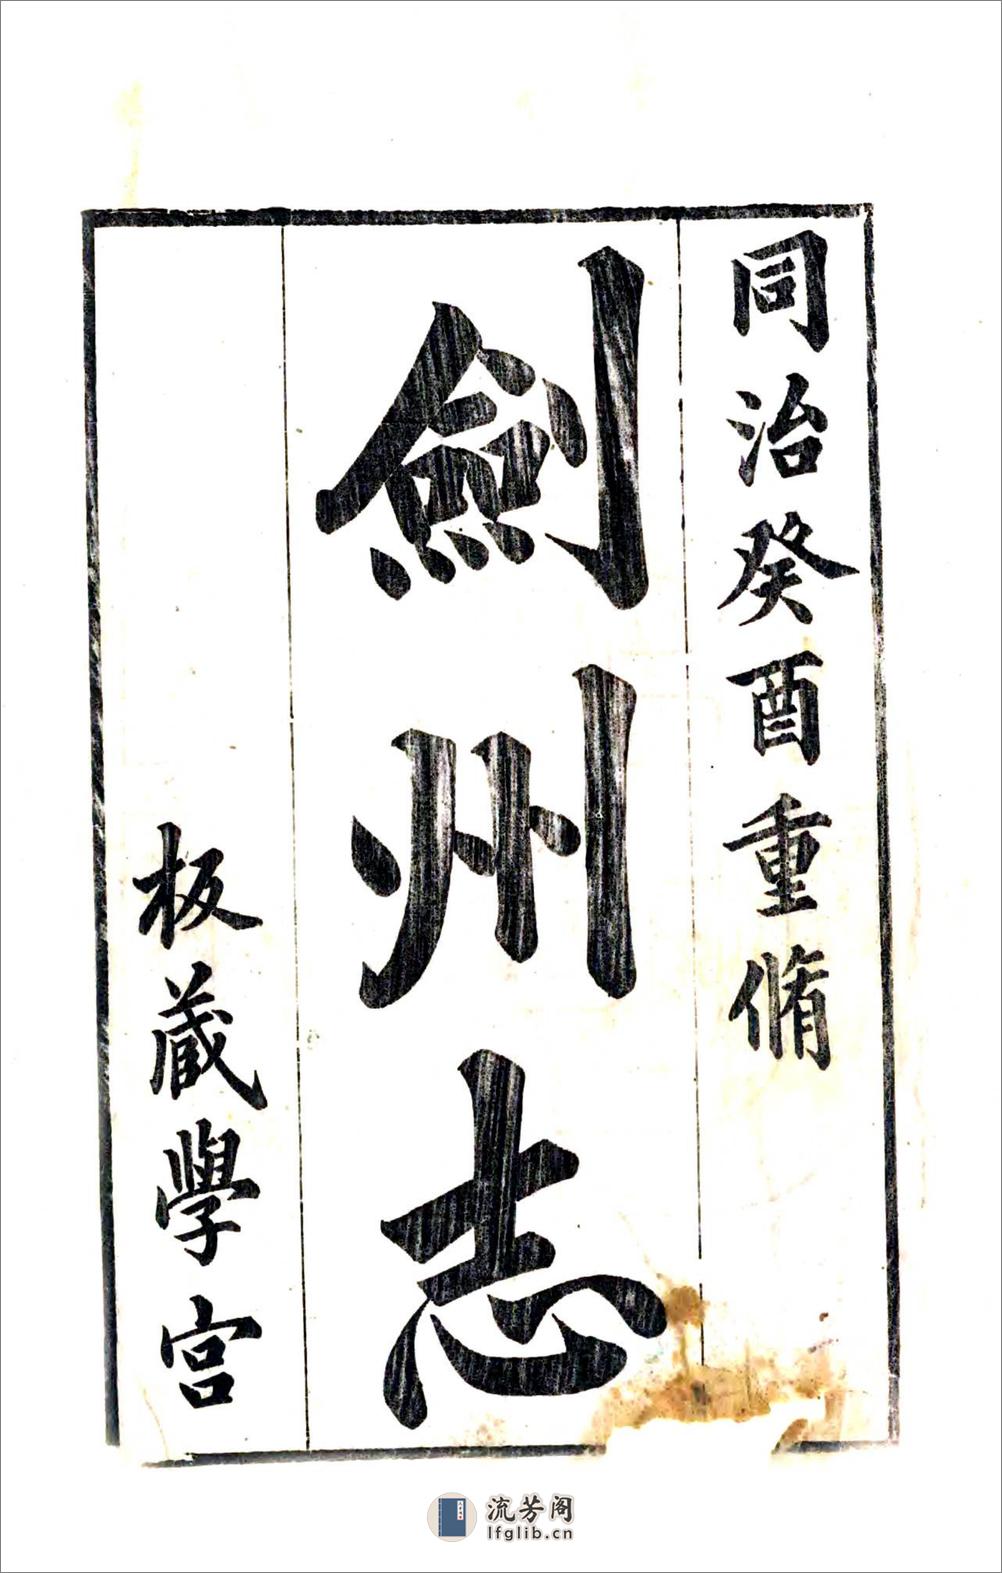 同治癸酉重脩
劍州志
板藏學宮
流芳阁
lfglib.cn